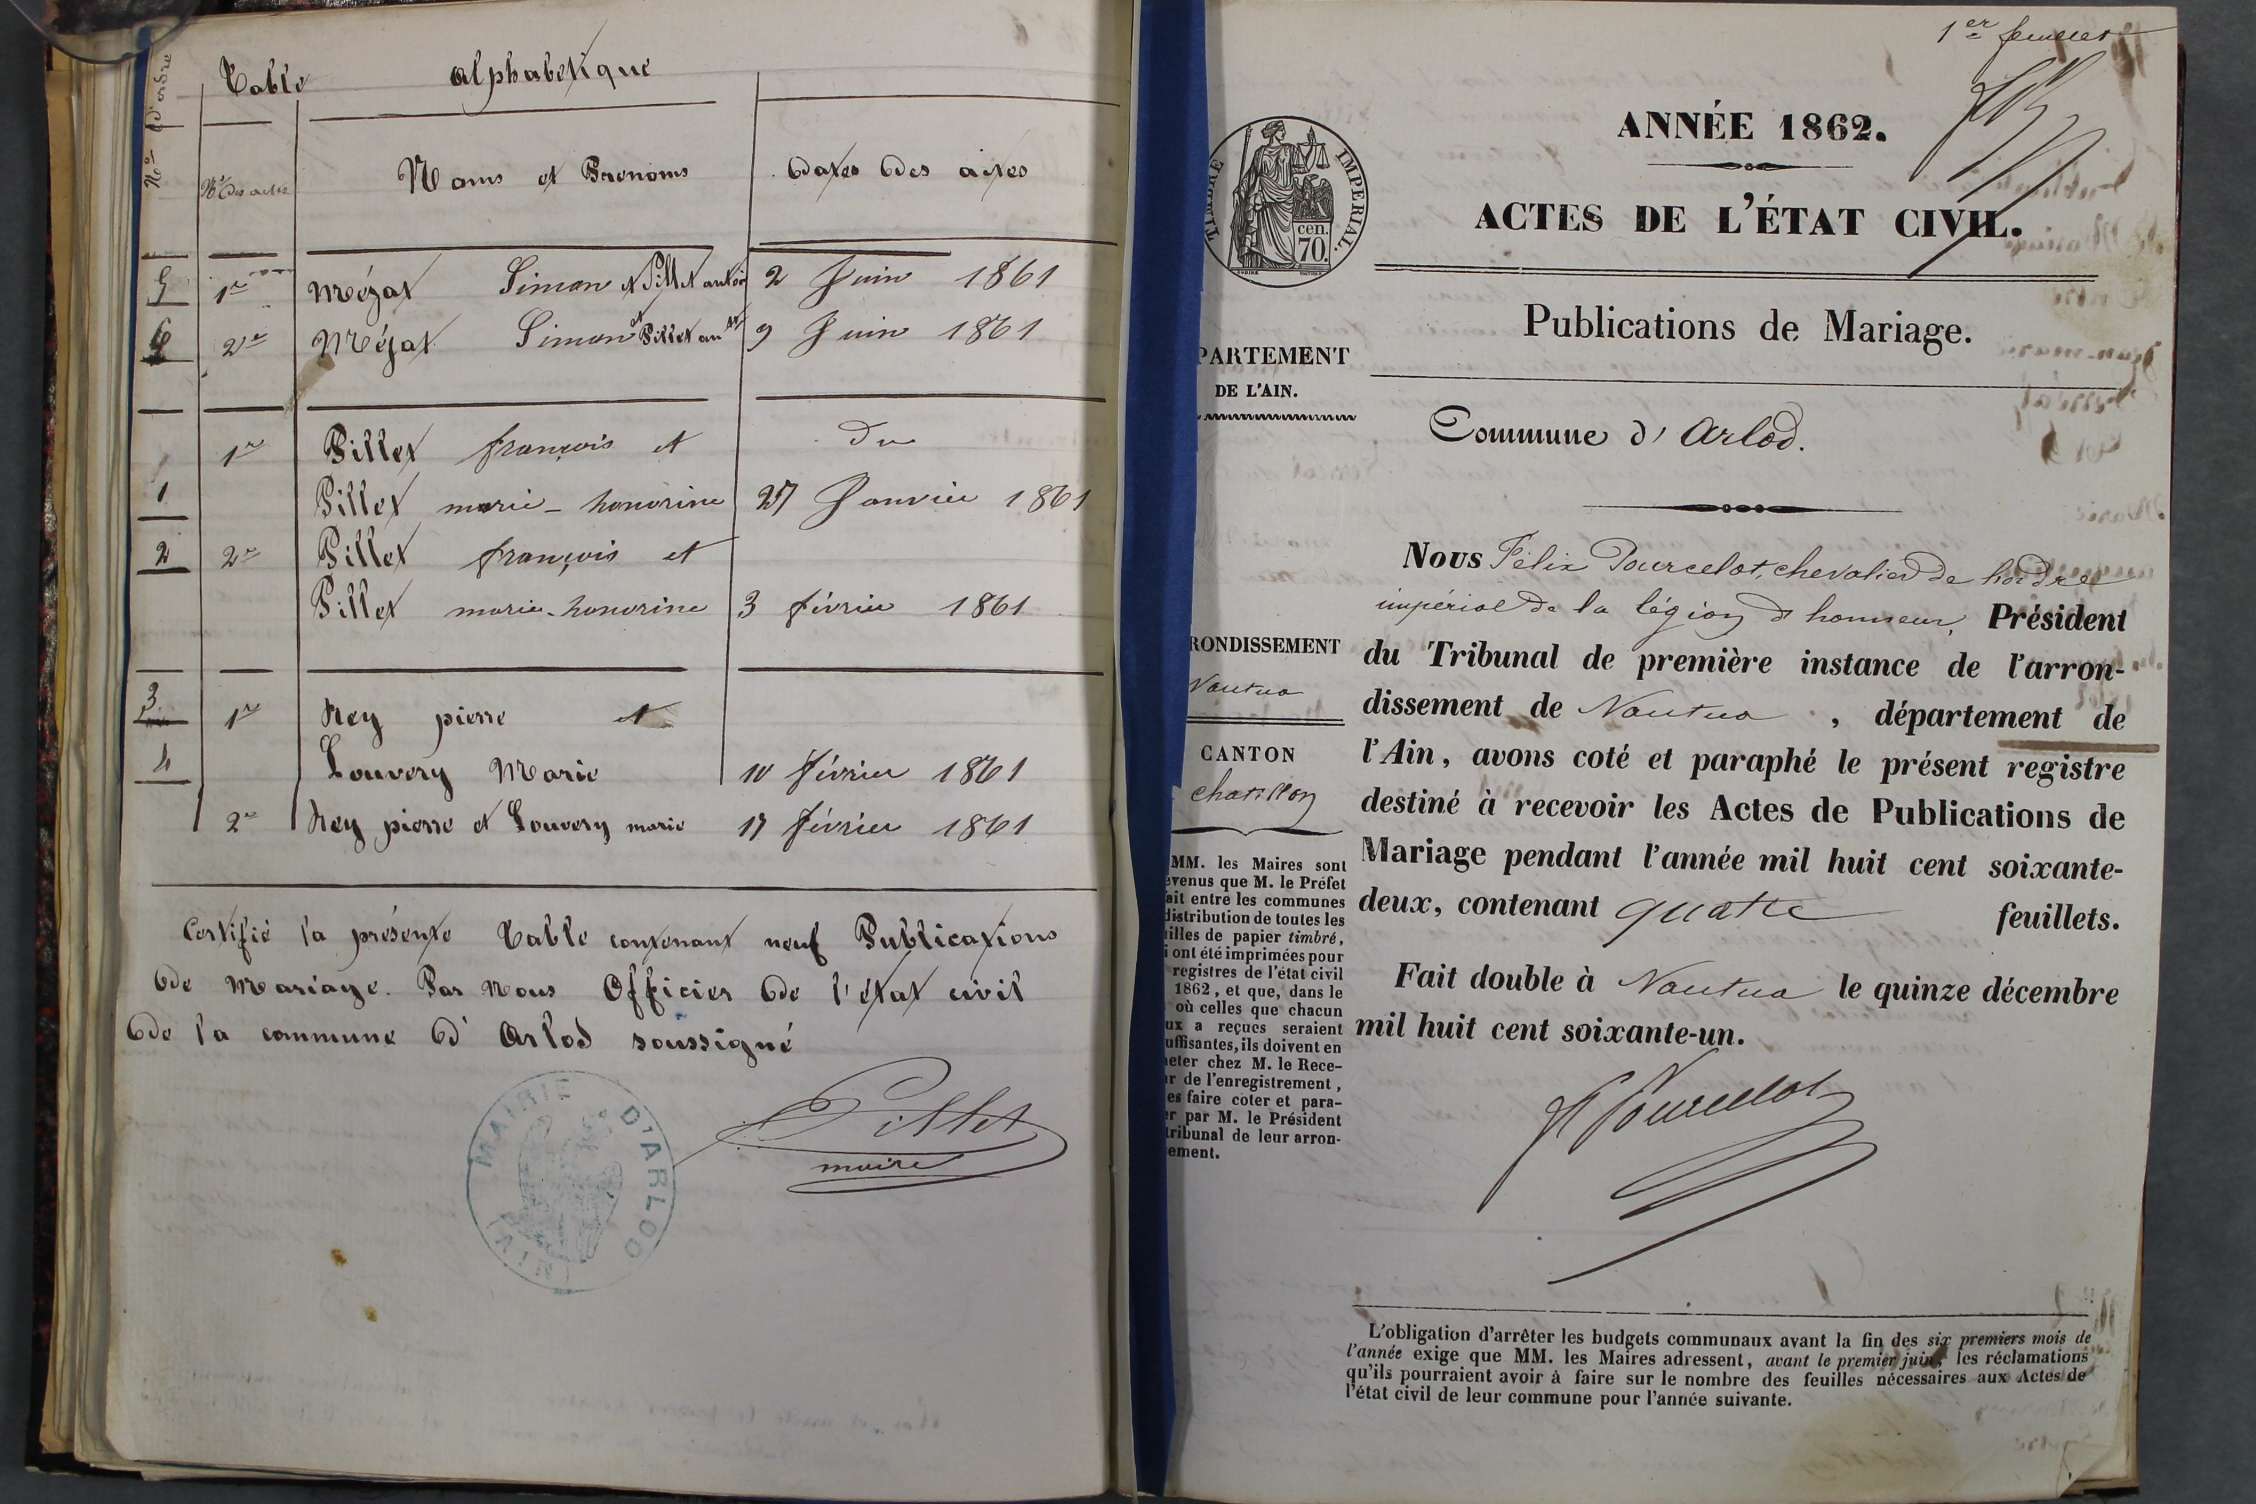 Table alphabetique
Nos d'ordre
No des actes
Noms et Prenoms
dates des actes
5 1re Mézat Simon et Pillet antoi 2 Juin 1861
6 2e Mézat Simon et Pillet an 9 Juin 1861
1re Pillet françois et du
1 Pillet marie-honorine 27 Janvier 1861
2 2e Pillet françois et
Pillet marie-honorine 3 février 1861
3 1re Rey pierre et
4 Louvery Marie 10 février 1861
2e Rey pierre et Louvery marie 17 février 1861
Certifié la présente Table contenant neuf Publications
de Mariage. Par Nous Officier de l'état civil
de la commune d'Arlod soussigné
Pillet
maire
MAIRIE D'ARLOD
(AIN)
1er feuillet
ANNÉE 1862.
ACTES DE L'ÉTAT CIVIL.
TIMBRE IMPERIAL.
cen.
70.
Publications de Mariage.
PARTEMENT
DE L'AIN.
Commune d'Arlod.
RONDISSEMENT
Nantua
CANTON
chatillon
MM. les Maires sont
evenus que M. le Préfet
ait entre les communes
distribution de toutes les
illes de papier timbré,
i ont été imprimées pour
registres de l'état civil
1862, et que, dans le
où celles que chacun
ux a reçues seraient
uffisantes, ils doivent en
eter chez M. le Rece-
r de l'enregistrement,
es faire coter et para-
er par M. le Président
tribunal de leur arron-
ement.
Nous Félix Pourcelot, chevalier de l'ordre
impérial de la légion d'honneur, Président
du Tribunal de première instance de l'arron-
dissement de Nantua, département de
l'Ain, avons coté et paraphé le présent registre
destiné à recevoir les Actes de Publications de
Mariage pendant l'année mil huit cent soixante-
deux, contenant quatre feuillets.
Fait double à Nantua le quinze décembre
mil huit cent soixante-un.
F Pourcelot
L'obligation d'arrêter les budgets communaux avant la fin des six premiers mois de
l'année exige que MM. les Maires adressent, avant le premier juin, les réclamations
qu'ils pourraient avoir à faire sur le nombre des feuilles nécessaires aux Actes de
l'état civil de leur commune pour l'année suivante.